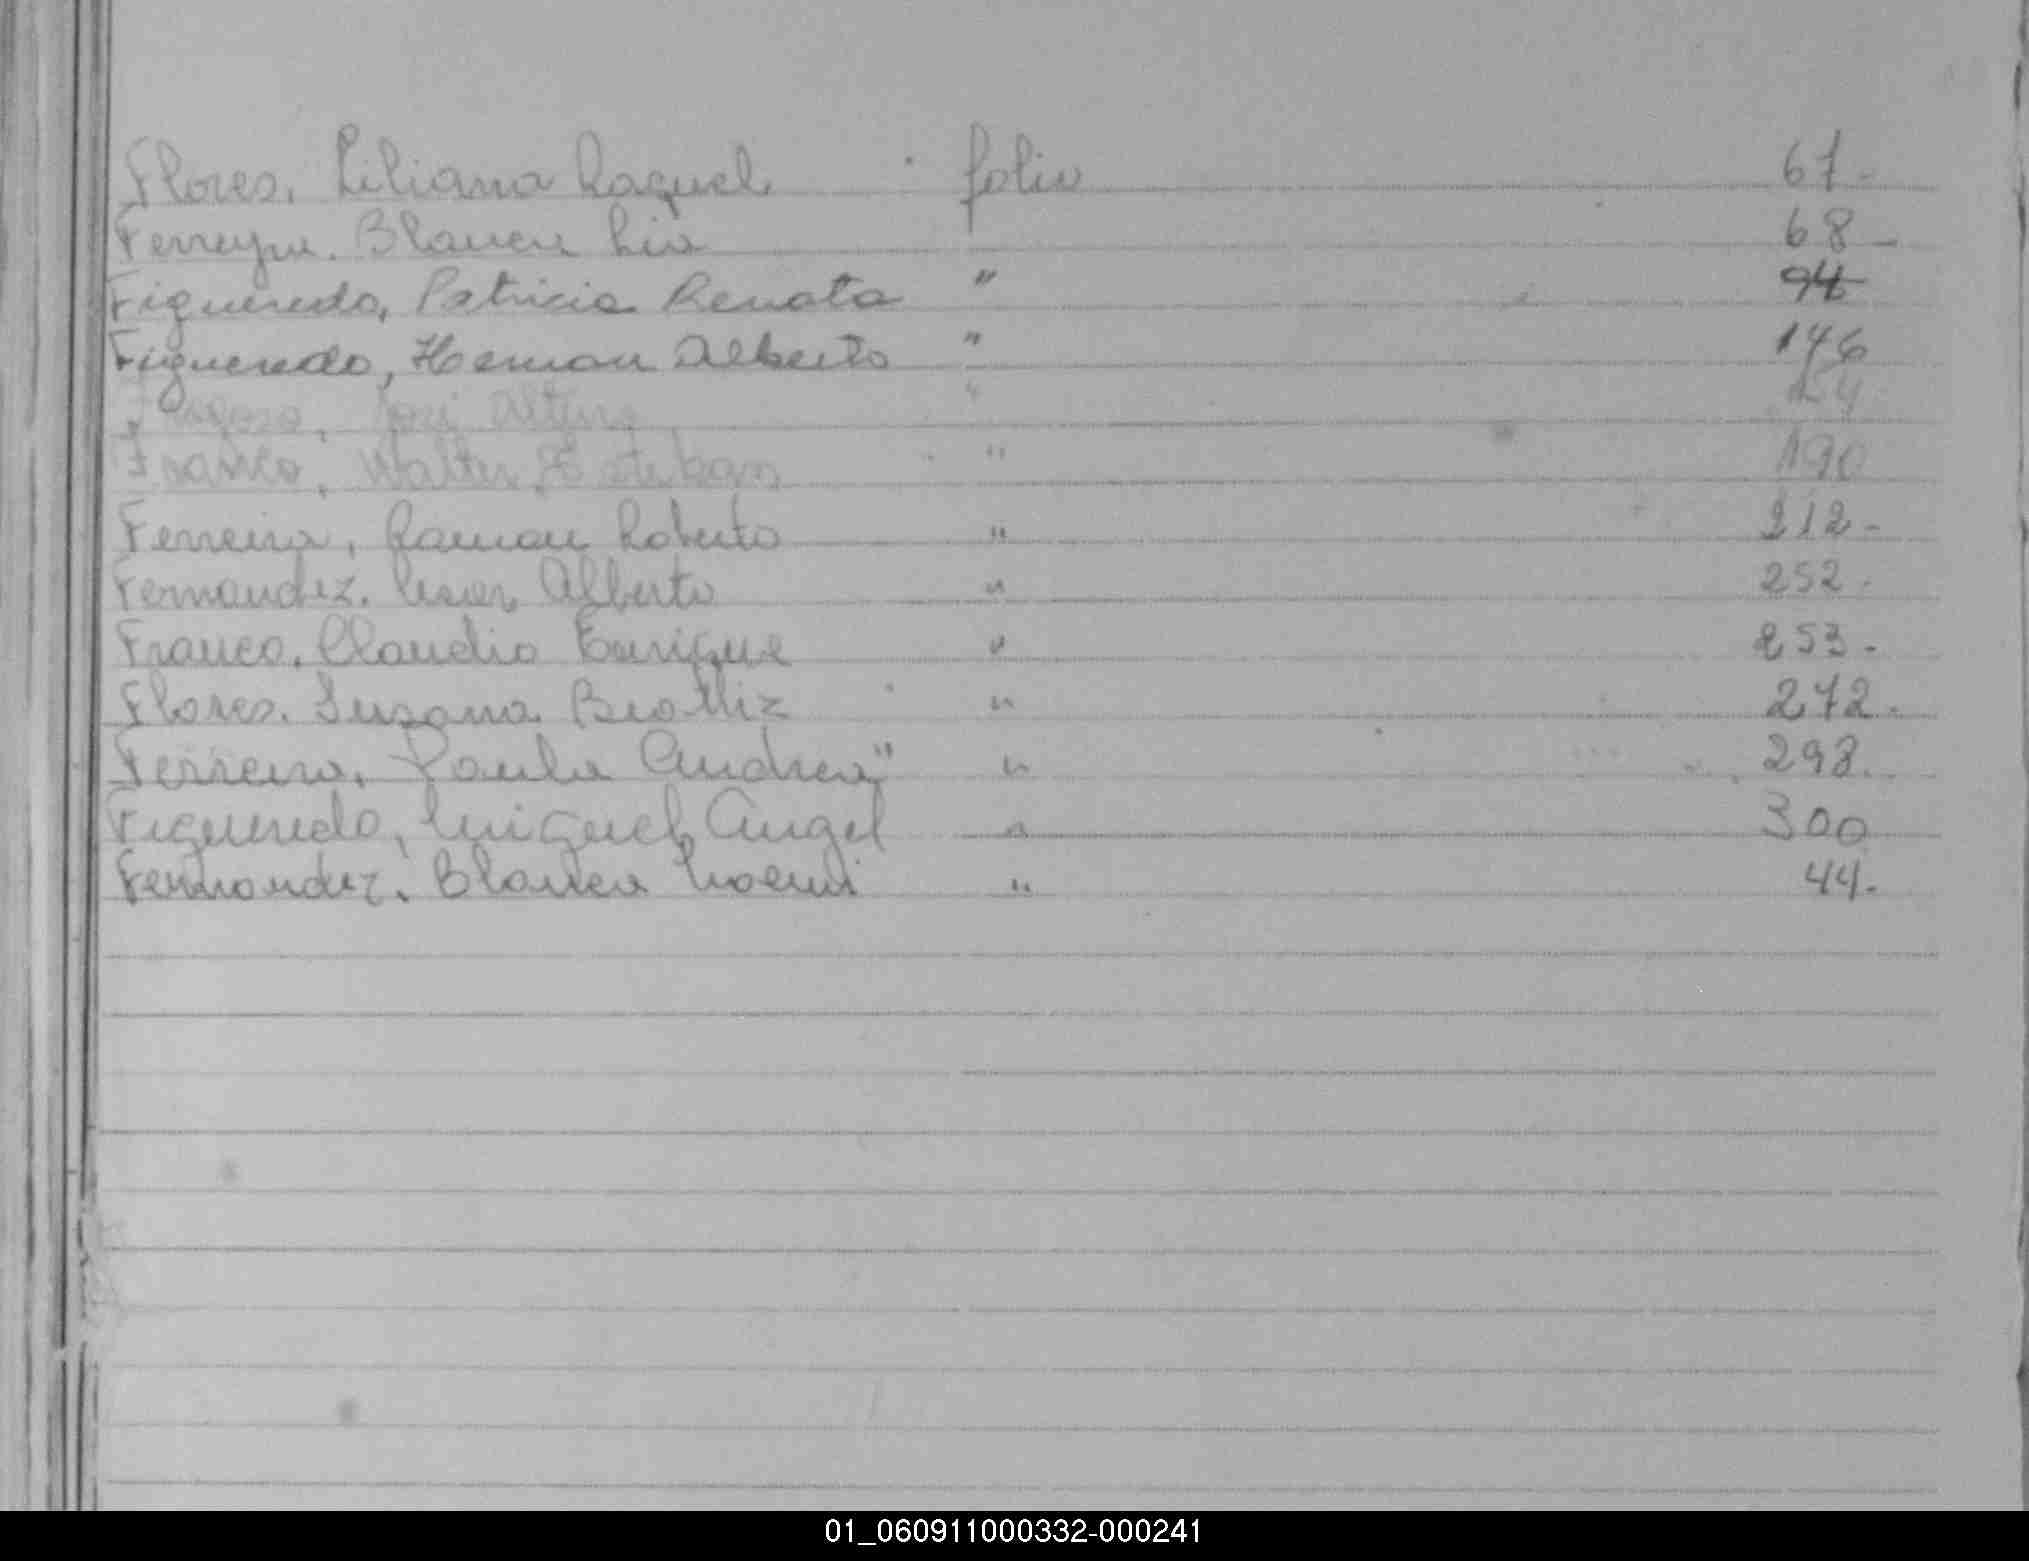 Flores, Liliana Raquel folio 67.-
Ferreyra. Blanca Lia 68-
Figueredo, Patricia Renata " 94
Figueredo, Hernan Alberto " 146
José "
Franco, Walter Esteban " 190
Ferreira, Ramon Roberto " 212-
Fernandez. Cesar Alberto " 252.
Franco. Claudio Enrique " 253.
Flores. Susana Beatriz " 272.
Ferreira. Paula Andrea" " 298.
Figueredo, Miguel Angel " 300
Fernandez. Blanca Noemi " 44.
01_060911000332-000241